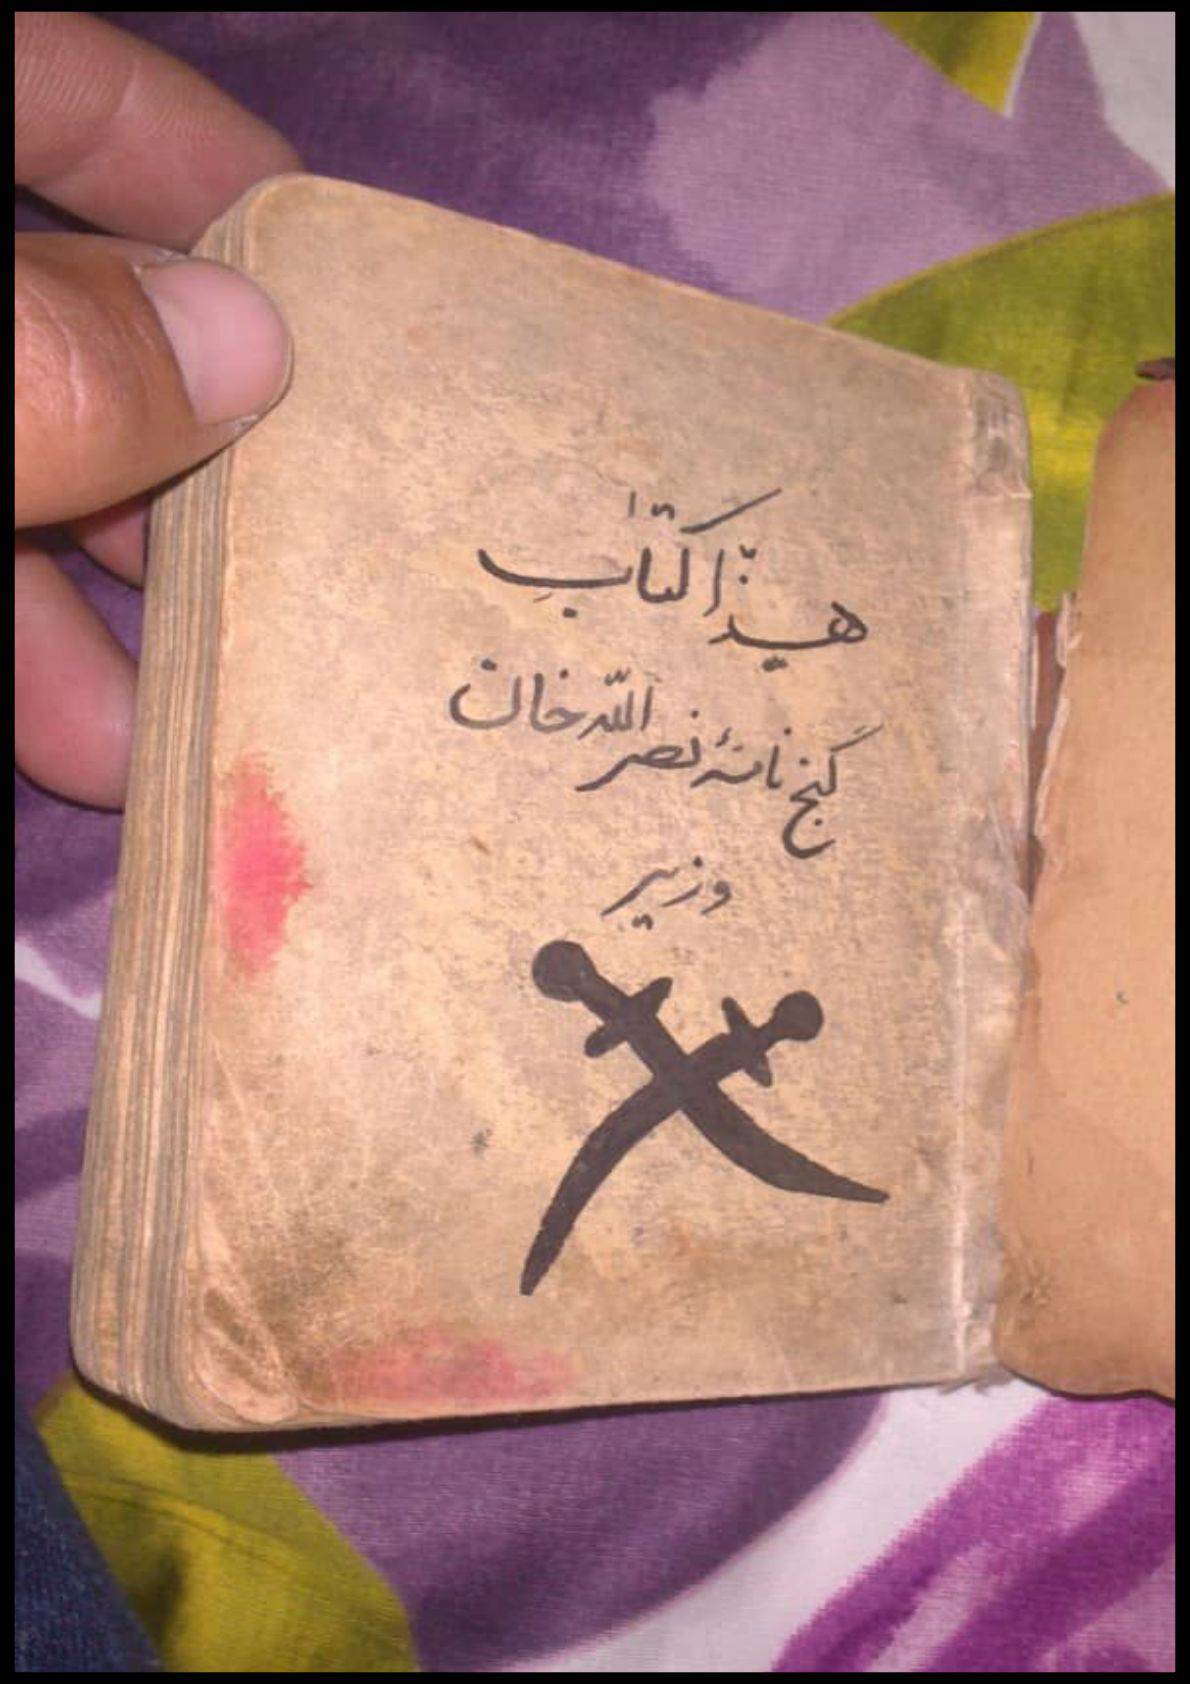 هیذا کتاب
گنج نامۀ نصر الله خان
وزیر